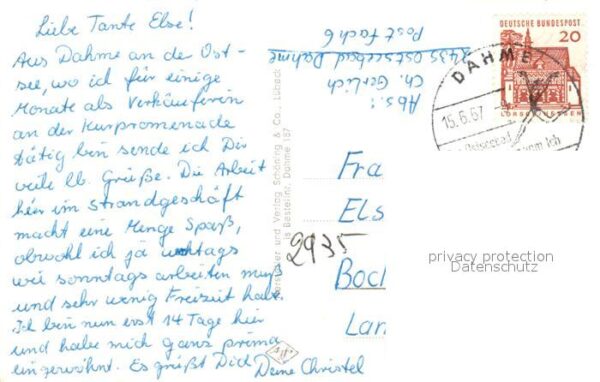 Liebe Tante Else!
Aus Dahme an der Ost-
see, wo ich für einige
Monate als Verkäuferin
an der Kurpromenade
tätig bin sende ich Dir
viele lb. Grüße. Die Arbeit
hier im Strandgeschäft
macht eine Menge Spaß,
obwohl ich ja
wie sonntags arbeiten muß
und sehr wenig Freizeit habe.
Ich bin nun erst 14 Tage hier
und habe mich ganz prima
eingewöhnt. Es grüßt Dich Deine Christel
Abs.:
Ch. Gerlich
2435 Ostseebad Dahme
Postfach 6
und Verlag Schöning & Co., Lübeck
Bestellnr. Dahme 187
DEUTSCHE BUNDESPOST
20
LORSCH/HESSEN
DAHME
15.6.67
Ostseebad
Fra
Els
2935
Boch
Lan
privacy protection
Datenschutz